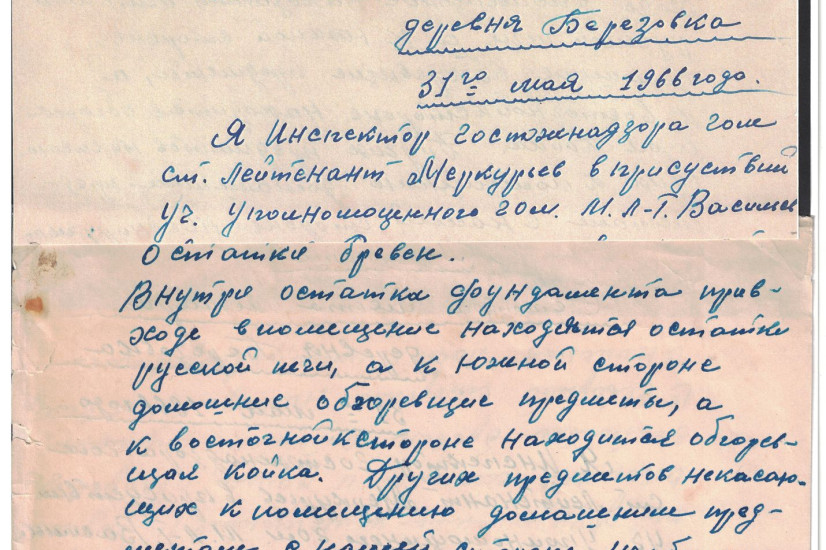 деревня Березовка
31го мая 1966 года.
Я Инспектор Госпожнадзора гом
ст. Лейтенант Меркурьев в присуствий
уч. Уполномоченного гом. М. Л-Г. Василье
остатке бревен.
Внутри остатка фундамента прив-
ходе в помещение находятся остатки
русской печи, а к южной стороне
домашние обгоревщие предметы, а
к восточной к стороне находится обгорев-
щая койка. Других предметов некасаю-
щих к помещению домашнии пред-